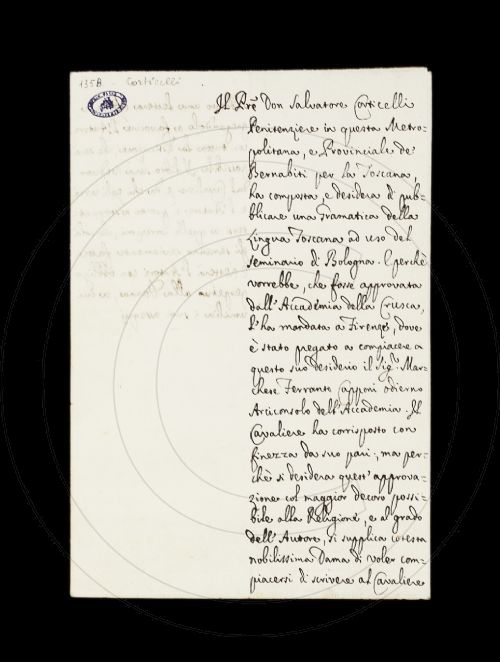 135B Corticelli
Il Prē Don Salvatore Corticelli
Penitenziere in questa Metro=
politana, e Provinciale de'
Bernabiti per la Toscana,
ha composta, e desidera di pub=
blicare una Gramatica della
Lingua Toscana ad uso del
Seminario di Bologna. E perchè
vorrebbe, che fosse approvata
dall'Accadēmia della Crusca,
l'ha mandata a Firenze, dove
è stato pregato a compiacere a
questo suo desiderio il Sig.r Mar=
chese Ferrante Capponi odierno
Arciconsolo dell'Accademia. Il
Cavaliere ha corrisposto con
finezza da suo pari; ma per=
chè si desidera quest'approva=
zione col maggior decoro possi=
bile alla Religione, e al grado
dell'Autore, si supplica cotesta
nobilissima Dama di voler com=
piacersi di scrivere al Cavaliere